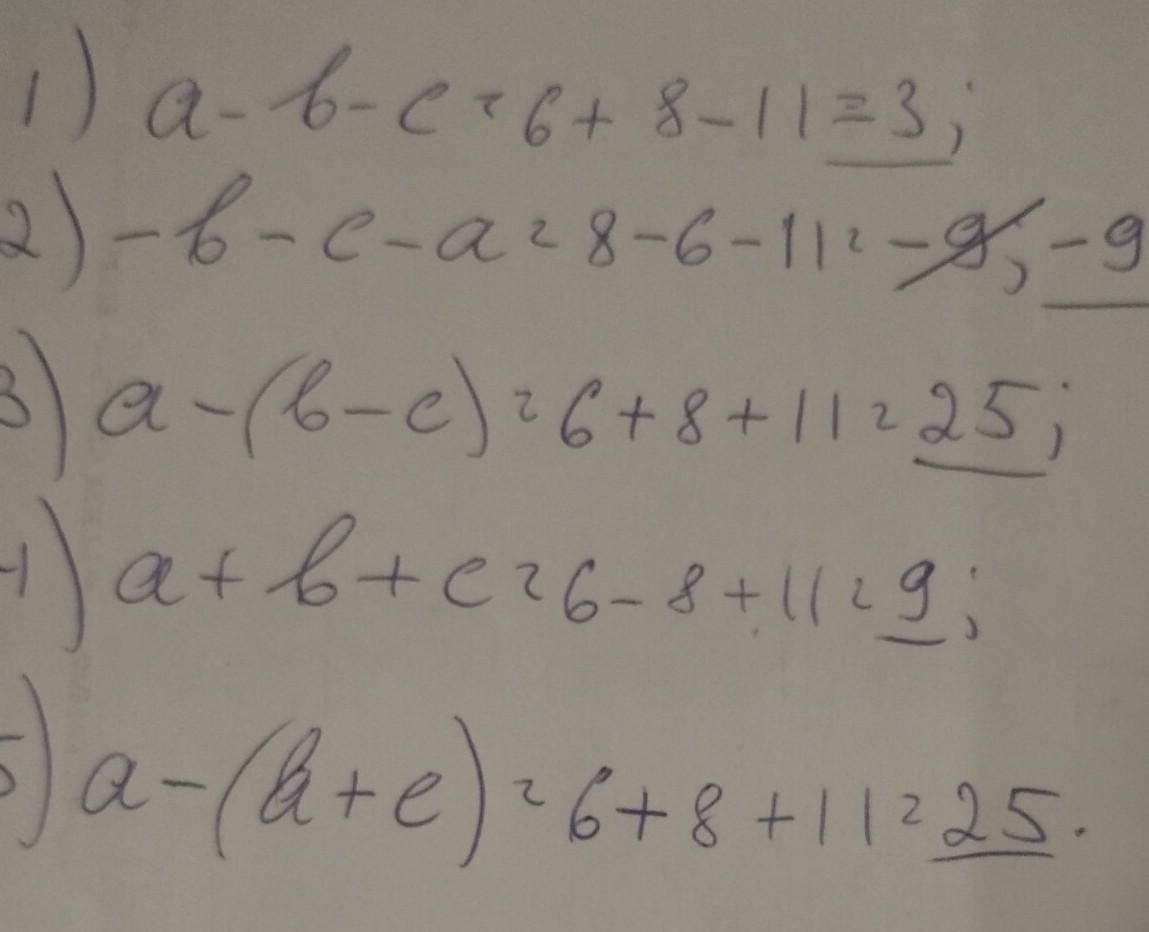 1) a - b - c = 6 + 8 - 11 = 3;
2) - b - c - a = 8 - 6 - 11 = -9; -9
3) a - (b - c) = 6 + 8 + 11 = 25;
4) a + b + c = 6 - 8 + 11 = 9;
5) a - (b + c) = 6 + 8 + 11 = 25.